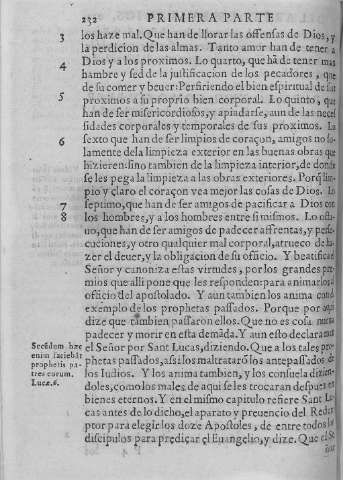 232 PRIMERA PARTE
3 los haze mal. Que han de llorar las offensas de Dios, y
la perdicion de las almas. Tanto amor han de tener a
4 Dios y a los proximos. Lo quarto, que hã de tener mas
hambre y sed de la justificacion de los pecadores, que
de su comer y beuer: Perfiriendo el bien espiritual de sus
5 proximos a su proprio bien corporal. Lo quinto, que
han de ser misericordiosos, y apiadarse, aun de las neces
sidades corporales y temporales de sus proximos. Lo
6 sexto que han de ser limpios de coraçon, amigos no so
lamente dela limpieza exterior en las buenas obras que
hizieren: sino tambien de la limpieza interior, de donde
se les pega la limpieza a las obras exteriores. Porq̃ lim
pio y claro el coraçon vea mejor las cosas de Dios. Lo
7 septimo, que han de ser amigos de pacificar a Dios con
8 los hombres, y a los hombres entre si mismos. Lo octa
uo, que han de ser amigos de padecer affrentas, y perse
cuciones, y otro qualquier mal corporal, a trueco de ha
zer el deuer, y la obligacion de su officio. Y beatifica el
Señor y canoniza estas virtudes, por los grandes pre
mios que alli pone que les responden: para animarlos al
officio del apostolado. Y aun tambien los anima con el
exemplo de los prophetas passados. Porque por aqui
dize que tambien passaron ellos. Que no es cosa nueua
padecer y morir en esta demãda. Y aun esto declara mas
el Señor por Sant Lucas, diziendo. Que a los tales pro
phetas passados, assi los maltratarõ los antepassados de
los Iudios. Y los anima tambien, y los consuela dizien-
doles, como los males de aqui se les trocaran despues en
bienes eternos. Y en el mismo capitulo refiere Sant Lu
cas antes de lo dicho, el aparato y preuencion del Redẽ
ptor para elegir los doze Apostoles, de entre todos los
discipulos para predicar el Euangelio, y dize. Que el Se
Secũdum hæc
enim faciebãt
prophetis pa-
tres eorum.
Lucæ. 6.